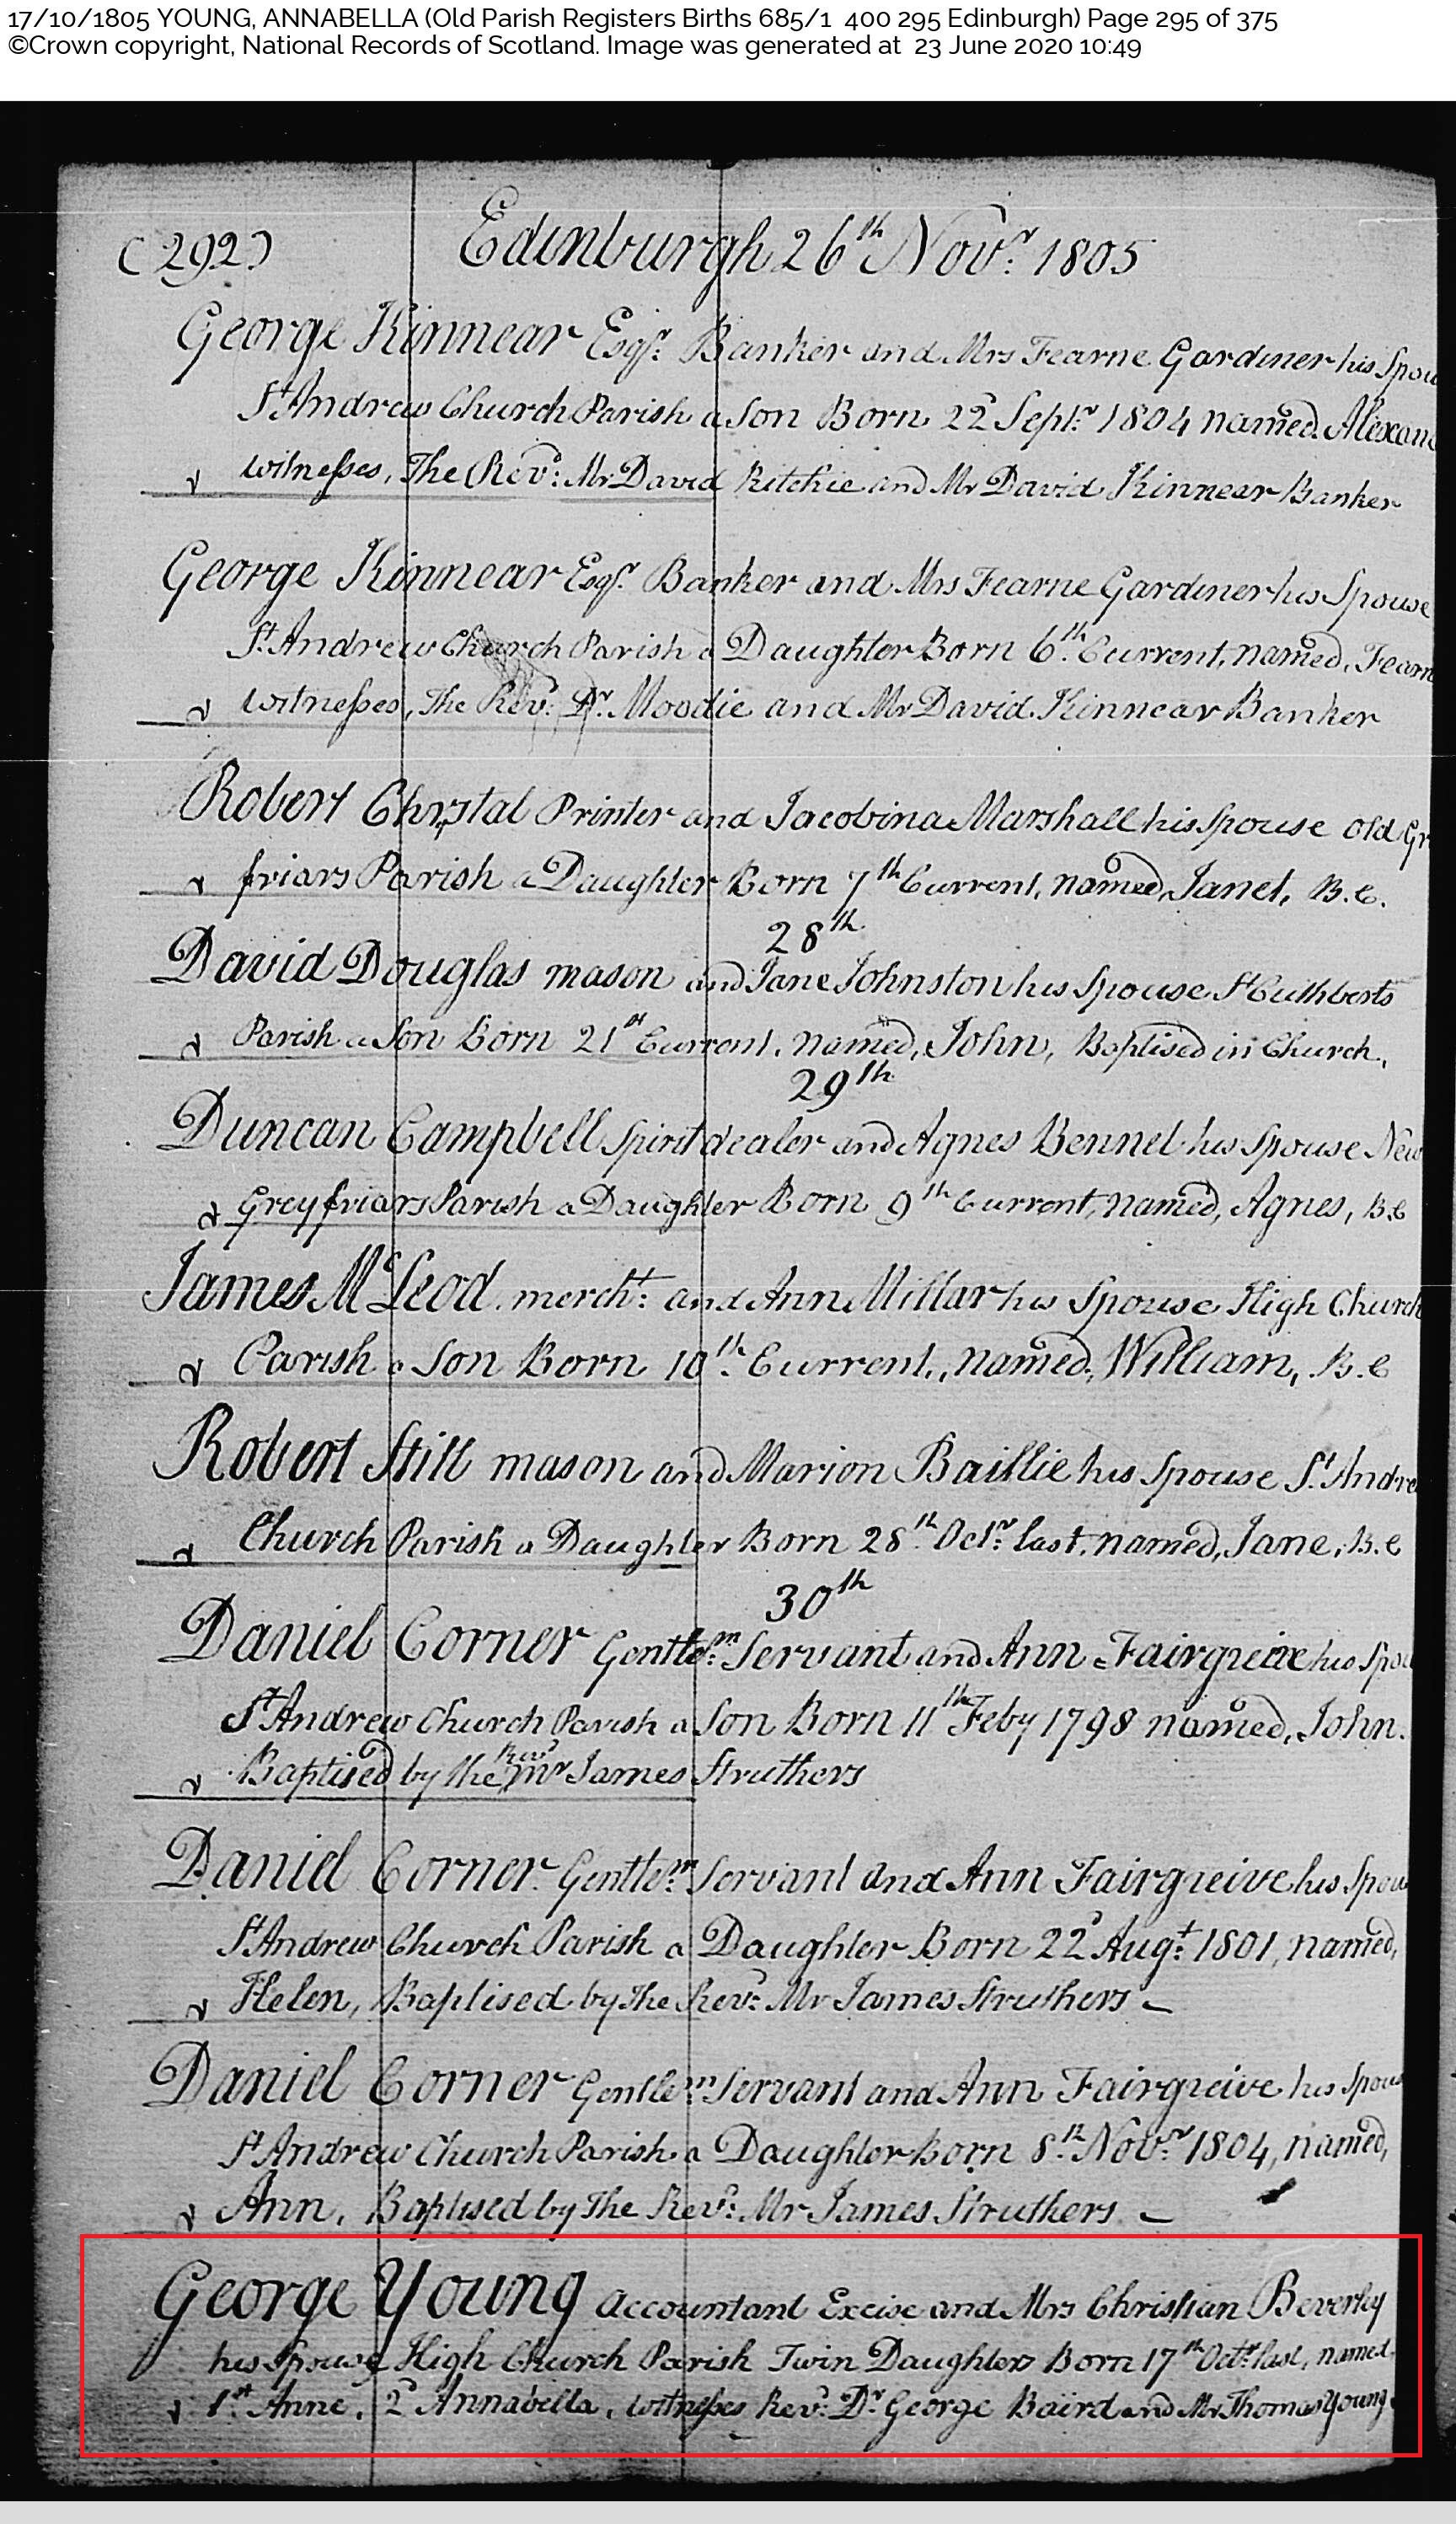 17/10/1805 YOUNG, ANNABELLA (Old Parish Registers Births 685/1 400 295 Edinburgh) Page 295 of 375
©Crown copyright, National Records of Scotland. Image was generated at 23 June 2020 10:49
(292) Edinburgh 26th Novr. 1805
George Kinnear Esqr. Banker and Mrs Fearne Gardiner his Spou
St Andrew Church Parish a Son Born 22d Septr. 1804 named Alexan
witnesses, The Revd: Mr David Ritchie and Mr David Kinnear Banker
George Kinnear Esqr. Banker and Mrs Fearne Gardiner his Spouse
St. Andrew Church Parish a Daughter Born 6th. Current, named, Fearn
witnesses, The Revd: Dr. Moodie and Mr David Kinnear Banker
Robert Chrystal Printer and Jacobina Marshall his Spouse Old Gr
friars Parish a Daughter Born 7th Current, named, Janet, B.C.
28th
David Douglas mason and Jane Johnston his Spouse St Cuthberts
Parish a Son Born 21st Current, named, John, Baptised in Church.
29th
Duncan Campbell Spirit dealer and Agnes Bennet his Spouse New
Greyfriars Parish a Daughter Born 9th Current, named, Agnes, B.C
James McLeod mercht: and Ann Millar his Spouse High Church
Parish a Son Born 10th. Current, named, William, B.C
Robert Still mason and Marion Baillie his Spouse St. Andre
Church Parish a Daughter Born 28th. Octr: last, named, Jane, B.C
30th
Daniel Corner Gentlem: Servant and Ann Fairgreive his Spou
St Andrew Church Parish a Son Born 11th Feby 1798 named, John.
Baptised by the Revd Mr James Struthers
Daniel Corner Gentlem: Servant and Ann Fairgreive his Spou
St Andrew Church Parish a Daughter Born 22d Augt: 1801, named,
Helen, Baptised by the Revd: Mr James Struthers
Daniel Corner Gentlem: Servant and Ann Fairgreive his Spous
St Andrew Church Parish a Daughter Born 8th. Novr. 1804, named,
Ann, Baptised by The Revd: Mr James Struthers
George Young Accountant Excise and Mrs Christian Beverley
his Spouse High Church Parish Twin Daughters Born 17th Octr. last, named,
1st. Anne, 2d Annabella, witnesses Revd: Dr. George Baird and Mr Thomas Young